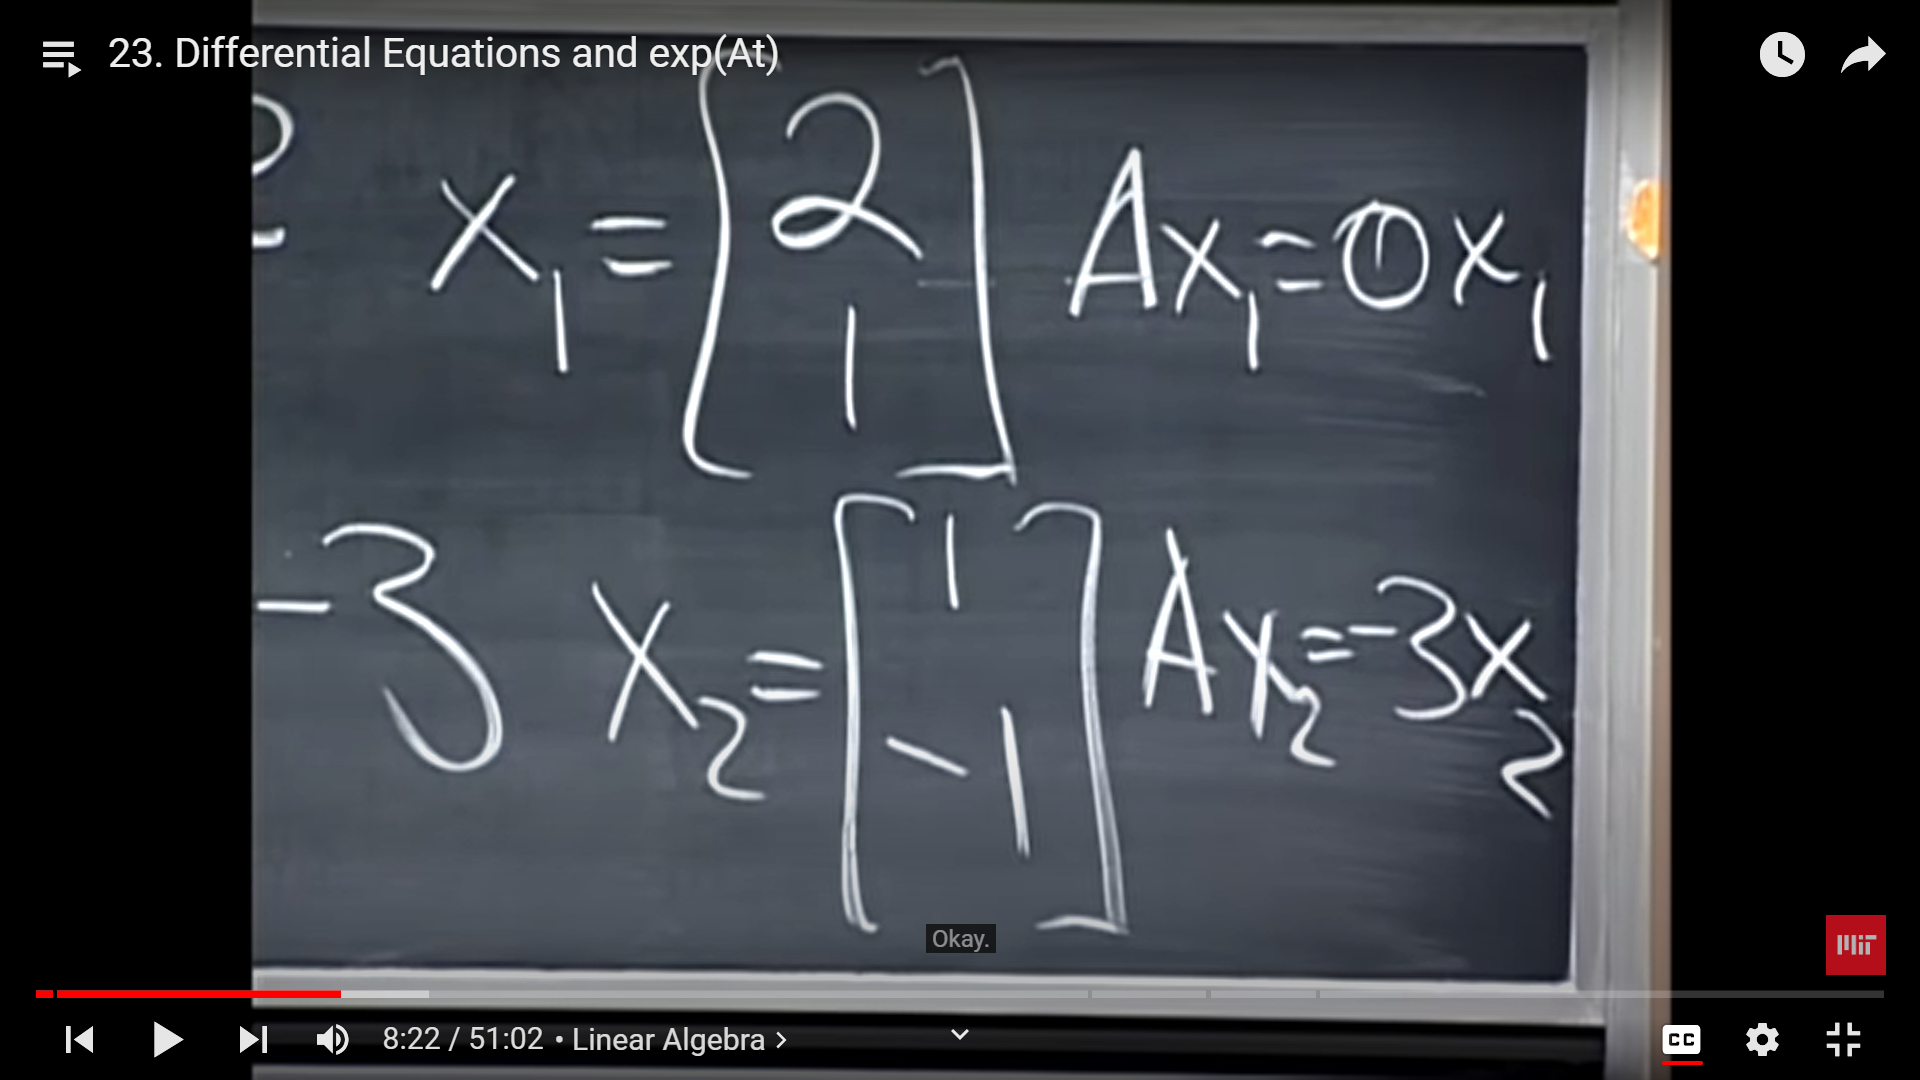 23. Differential Equations and exp(At)
2 x₁ = [2 1] Ax₁ = 0x₁
-3 x₂ = [1 -1] Ax₂ = -3x₂
Okay.
MIT
8:22 / 51:02 • Linear Algebra >
CC